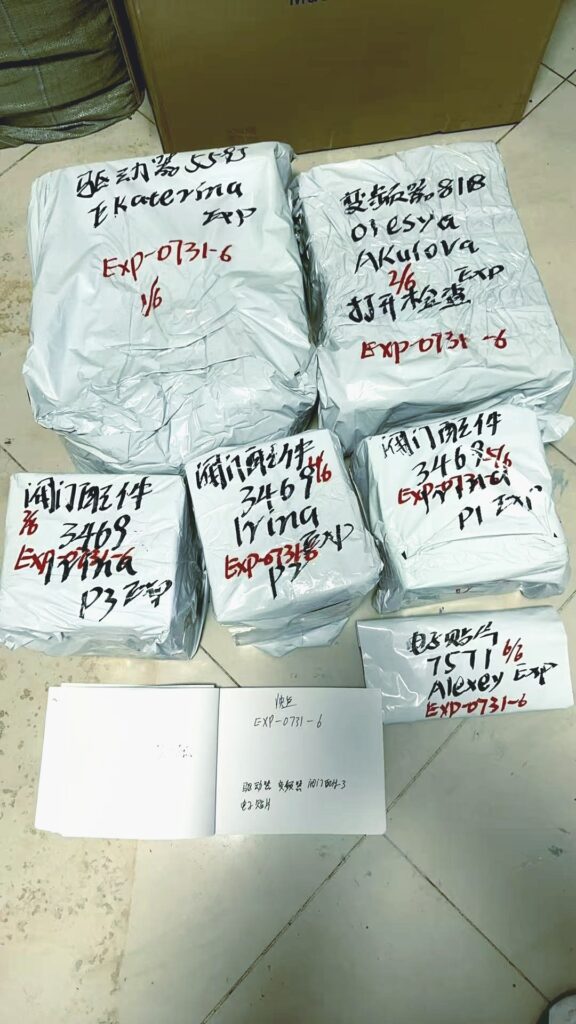 驱动器 5583
Ekaterina
Exp
EXP-0731-6
1/6
变频器 818
Olesya
Akulova
2/6
Exp
打开检查
EXP-0731-6
阀门配件
3/6
3469
EXP-0731-6
Irina
P3 Exp
阀门配件
4/6
3469
Irina
EXP-0731-6
Exp
P3
阀门配件
3469
5/6
EXP-0731-6
Irina
P1 Exp
电子贴片
7571 6/6
Alexey Exp
EXP-0731-6
快点
EXP-0731-6
驱动器 变频器 阀门配件-3
电子贴片